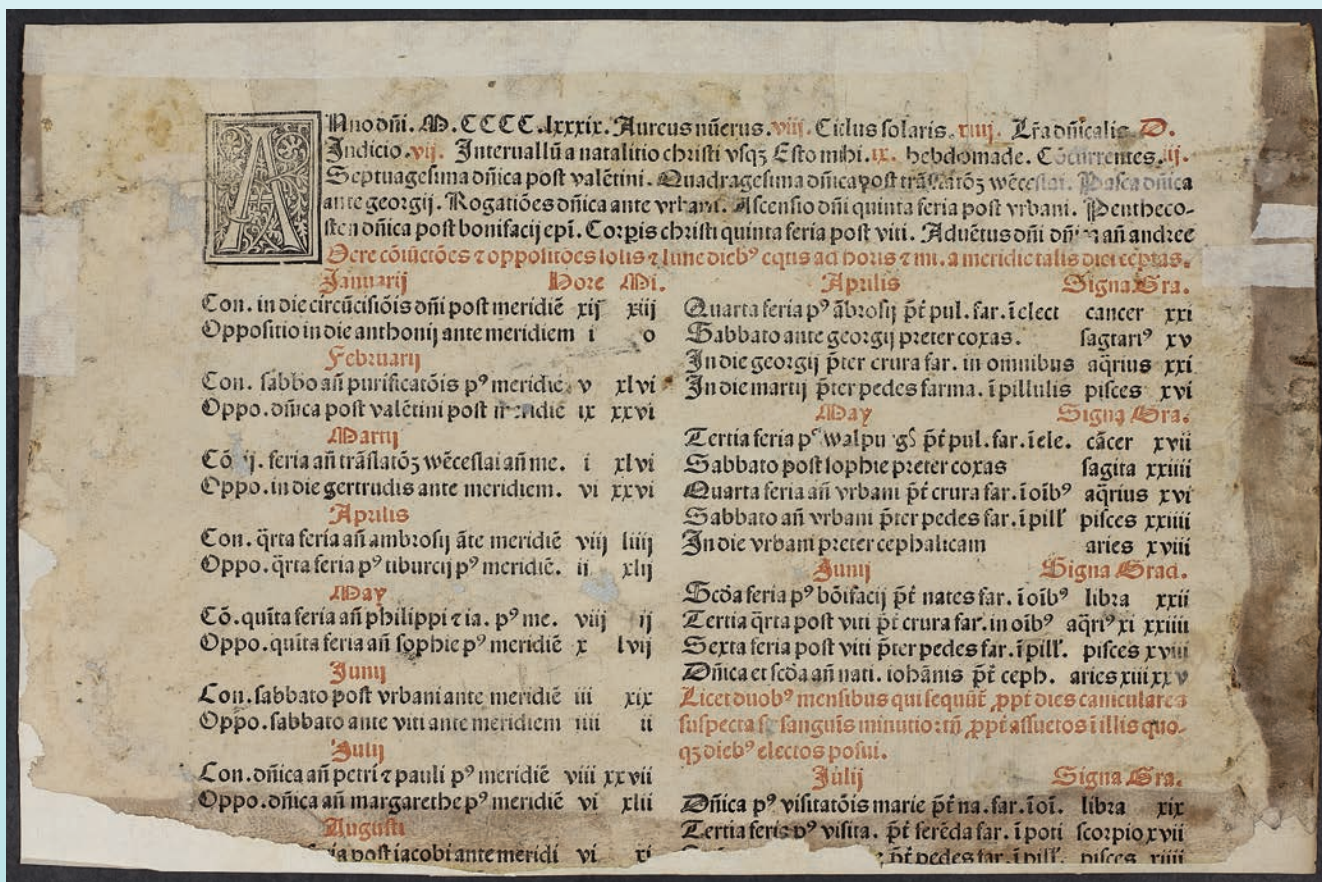 Anno dñi. M. CCCC. lxxxix. Aureus nũerus. viij. Ciclus solaris. Lr̃a dñicalis. D.
Indicio. vij. Interuallũ a natalitio christi vsqꝫ Esto mihi. ix. hebdomade. Cõcurrentes. ij.
Septuagesima dñica post valẽtini. Quadragesima dñica post trãslatõꝫ wẽceslai. Pasca dñica
ante georgij. Rogatiões dñica ante vrbani. Ascensio dñi quinta feria post vrbani. Penthecoſ-
sten dñica post bonifacij epĩ. Corpis christi quinta feria post viti. Aduẽtus dñi añ andree
Uere cõiũctões ⁊ oppositões solis ⁊ lune diebꝰ equs ad horis ⁊ mi. a meridie talis diei cẽptas.
Januarij Hore Mi.
Con. in die circũcisiõis dñi post meridiẽ xij xiij
Oppositio in die anthonij ante meridiem i o
Februarij
Con. sabbo añ purificatõis pꝰ meridiẽ v xlvi
Oppo. dñica post valẽtini post meridiẽ ix xxvi
Martij
Cõ ij. feria añ trãslatõꝫ wẽceslai añ me. i xlvi
Oppo. in die gertrudis ante meridiem. vi xxvi
Aprilis
Con. q̃rta feria añ ambrosij ãte meridiẽ viij liiij
Oppo. q̃rta feria pꝰ tiburcij pꝰ meridiẽ. ii xlij
May
Cõ. quĩta feria añ philippi ⁊ ia. pꝰ me. viij ij
Oppo. quĩta feria añ sophie pꝰ meridiẽ x lvij
Junij
Con. sabbato post vrbani ante meridiẽ iii xix
Oppo. sabbato ante viti ante meridiem iiii ii
Julij
Con. dñica añ petri ⁊ pauli pꝰ meridiẽ viii xxvii
Oppo. dñica añ margarethe pꝰ meridiẽ vi xlii
Augusti
feria post iacobi ante meridi vi xi
Aprilis Signa Gra.
Quarta feria pꝰ ãbrosij p̃t pul. far. ĩ elect cancer xxi
Sabbato ante georgij preter coxas. sagtariꝰ xv
In die georgij p̃ter crura far. in omnibus aq̃rius xxi
In die martij p̃ter pedes farma. ĩ pillulis pisces xvi
May Signa Gra.
Tertia feria pꝰ walpurgꝭ p̃t pul. far. ĩ ele. cãcer xvii
Sabbato post sophie preter coxas sagita xxiiii
Quarta feria añ vrbani p̃t crura far. ĩ oĩbꝰ aq̃rius xvi
Sabbato añ vrbani p̃ter pedes far. ĩ pill̃ pisces xxiiii
In die vrbani preter cephalicam aries xviii
Junij Signa Grad.
Scd̃a feria pꝰ bõifacij p̃t nates far. ĩ oĩbꝰ libra xxii
Tertia q̃rta post viti p̃t crura far. in oĩbꝰ aq̃riꝰ xi xxiiii
Sexta feria post viti p̃ter pedes far. ĩ pill̃. pisces xviii
Dñica et scd̃a añ nati. iohãnis p̃t ceph. aries xiii xxv
Licet duobꝰ mensibus qui sequũt̃ ꝓpt̃ dies caniculares
suspecta sĩ sanguĩs minutio: tñ ꝓpt̃ assuetos ĩ illis quo-
qꝫ diebꝰ electos posui.
Julij Signa Gra.
Dñica pꝰ visitatõis marie p̃t na. far. ĩ oĩ. libra xix
Tertia feria pꝰ visita. p̃t ferẽda far. ĩ poti scorpio xvii
p̃t pedes far. ĩ pill̃. pisces xiiii